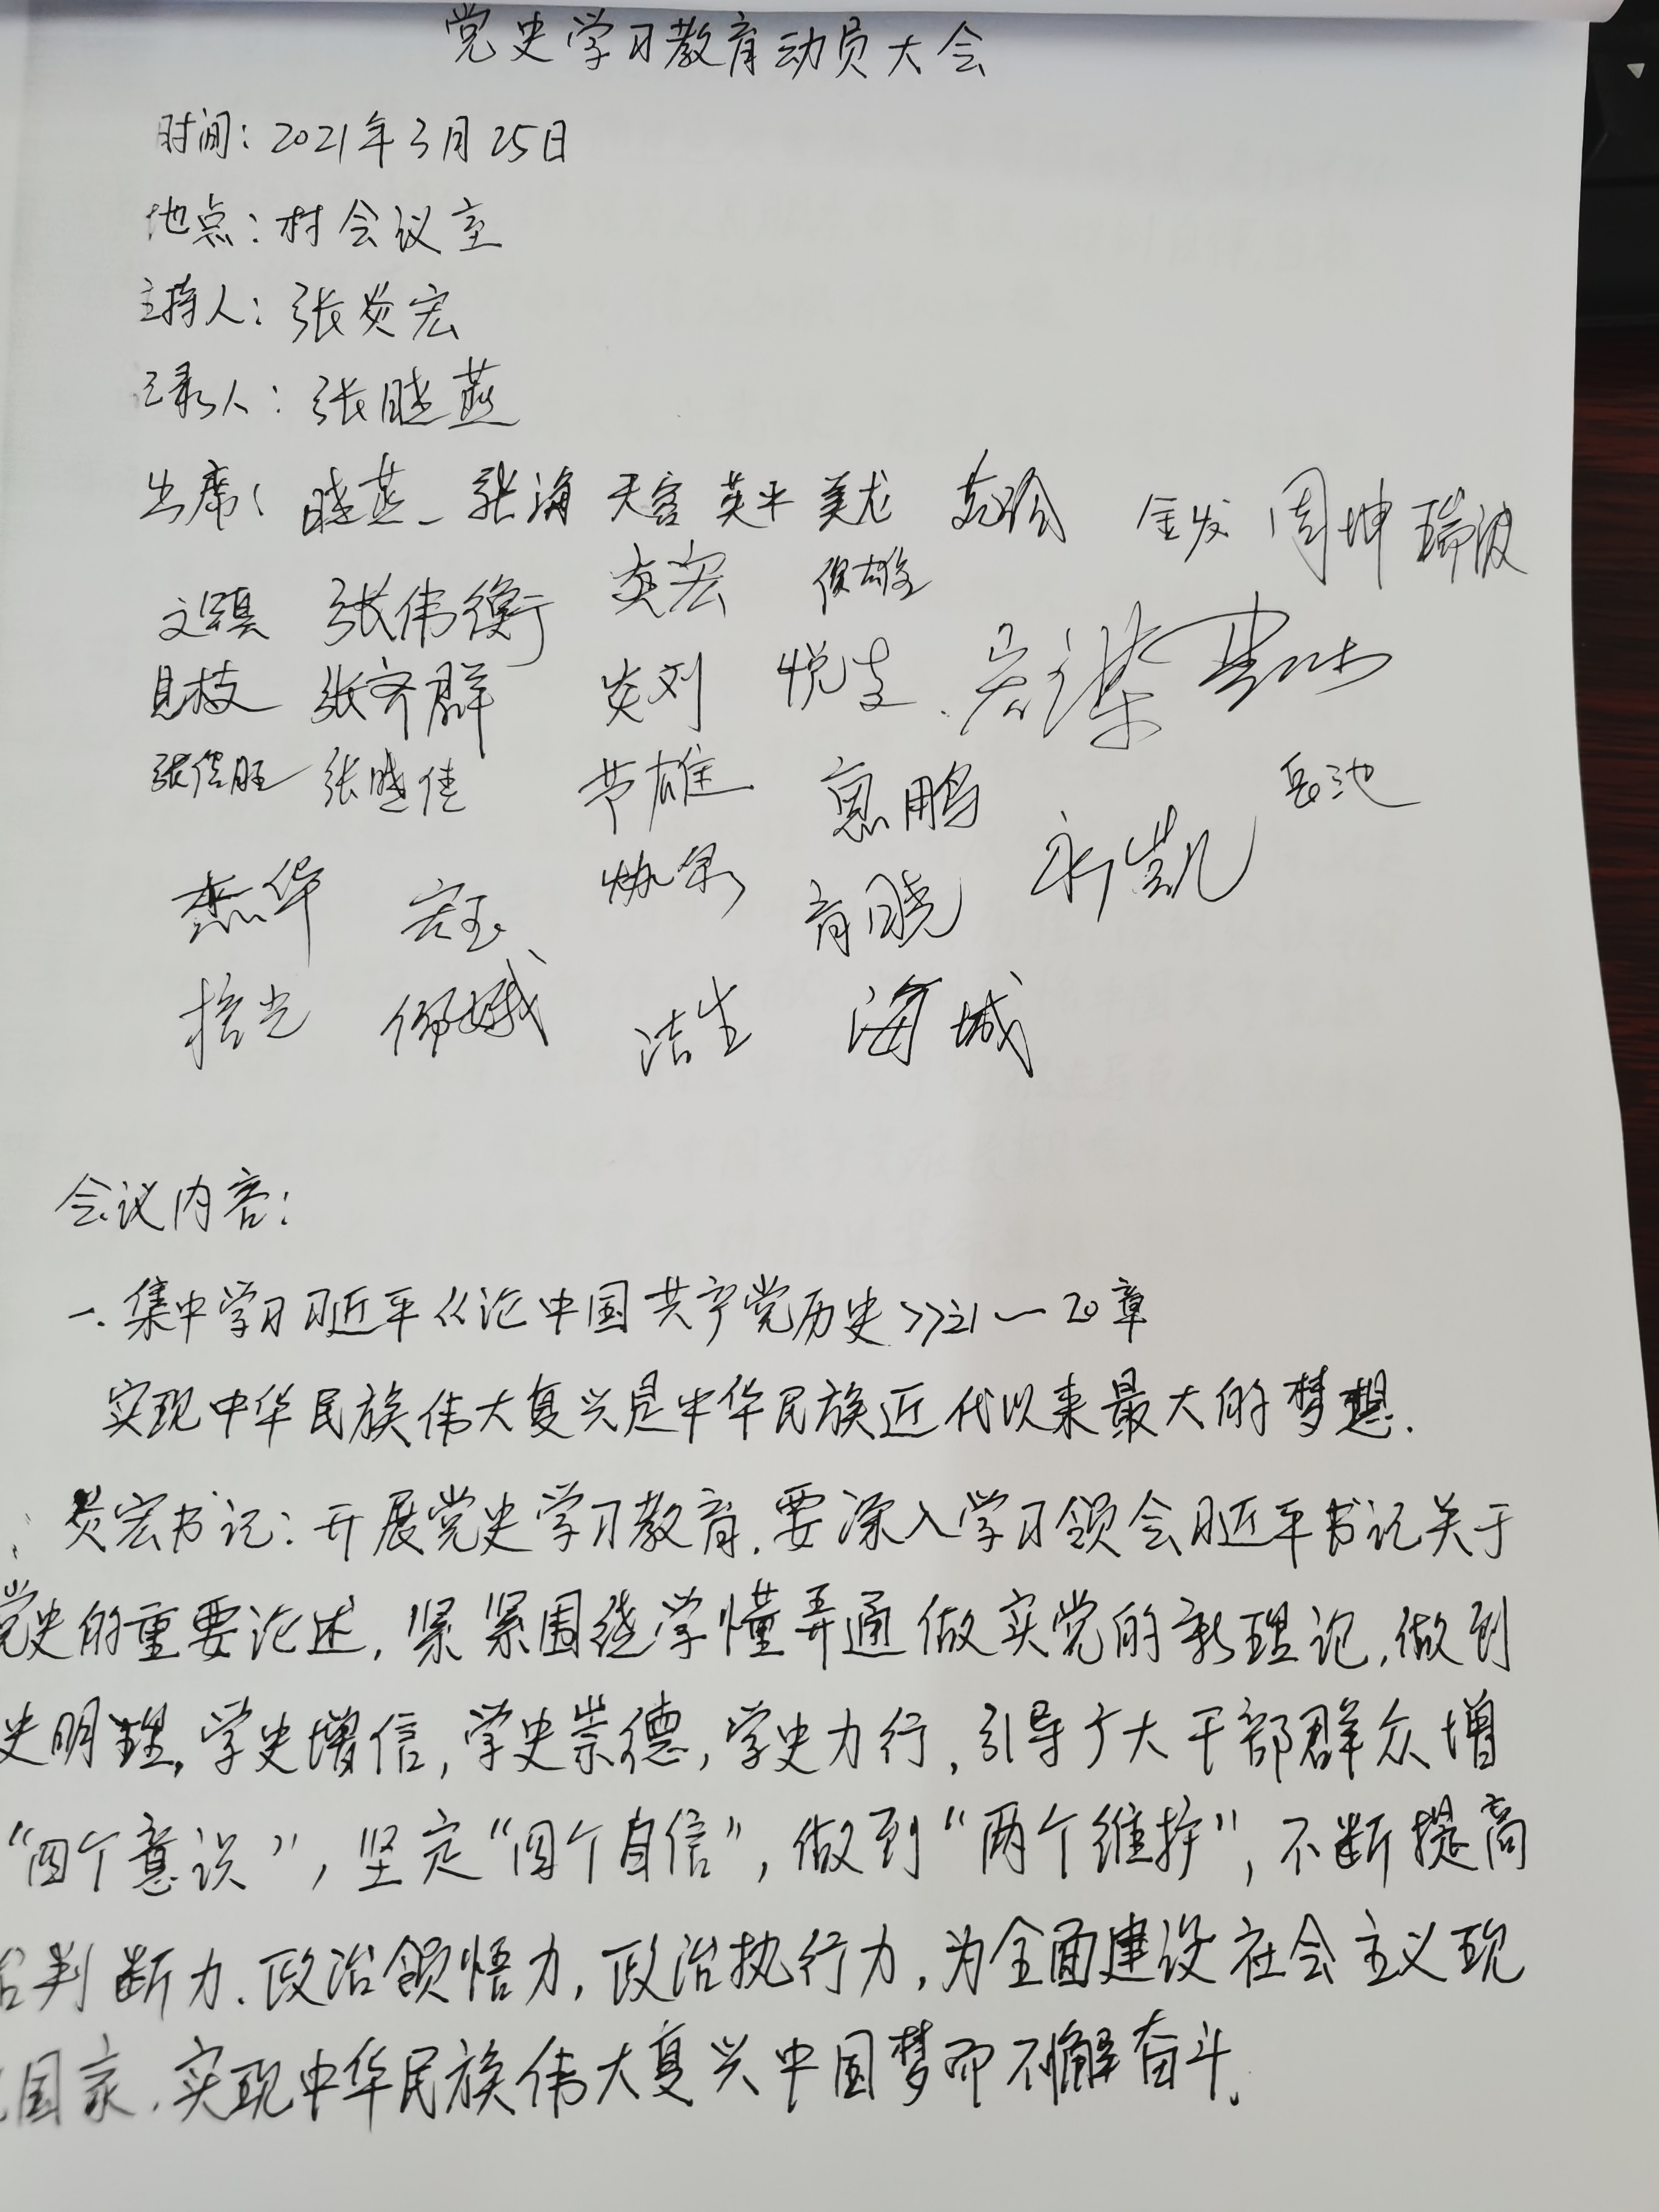 党史学习教育动员大会
时间：2021年3月25日
地点：村会议室
主持人：张炎宏
记录人：张晓燕
出席： 晓燕 张海 天容 英平 美龙 金发 周坤 瑞波
张伟衡 炎宏 俊雄
见枝 张齐群 炎刘 悦生
张佳旺 张晓佳 节雄 惠鹏 岳池
杰华 宏玉 育晓 永凯
佩娥 洁生 海城
会议内容：
一、集中学习习近平《论中国共产党历史》21—20章
实现中华民族伟大复兴是中华民族近代以来最大的梦想.
炎宏书记：开展党史学习教育，要深入学习领会习近平书记关于
党史的重要论述，紧紧围绕学懂弄通做实党的新理论，做到
史明理，学史增信，学史崇德，学史力行，引导广大干部群众增
“四个意识”，坚定“四个自信”，做到“两个维护”，不断提高
治判断力、政治领悟力，政治执行力，为全面建设社会主义现
国家，实现中华民族伟大复兴中国梦而不懈奋斗。